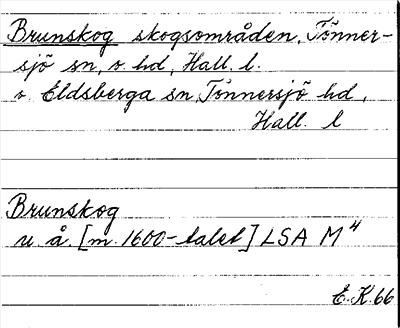 Brunskog skogsområden, Tönner-
sjö sn, o hd, Hall. l.
o. Eldsberga sn, Tönnersjö hd,
Hall. l
Brunskog
u. å. [m. 1600-talet] LSA M⁴
E.K.66